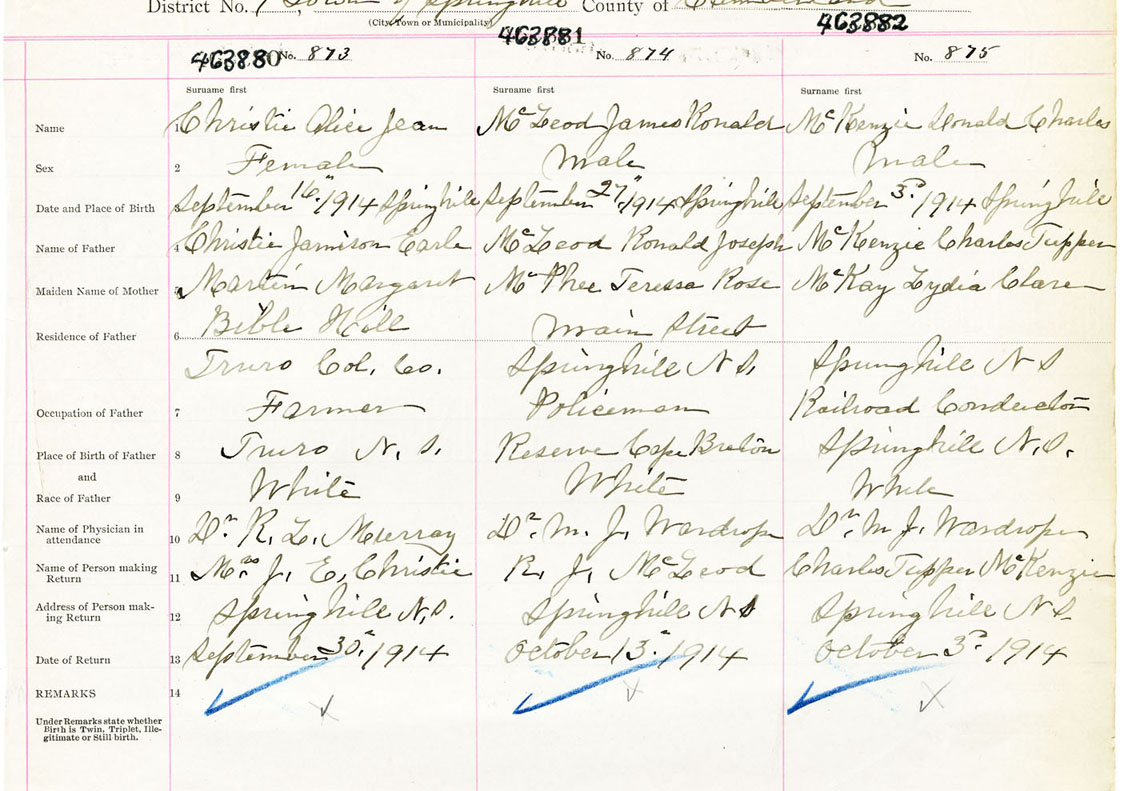 District No. 1 Town of Springhill County of Cumberland
(City, Town or Municipality)
463880 463881 463882
No. 873 No. 874 No. 875
Surname first Surname first Surname first
Name 1 Christie Alice Jean McLeod James Ronald McKenzie Donald Charles
Sex 2 Female Male Male
Date and Place of Birth 3 September 16" 1914 Springhill September 27" 1914 Springhill September 3d 1914 Springhill
Name of Father 4 Christie Jamison Earle McLeod Ronald Joseph McKenzie Charles Tupper
Maiden Name of Mother 5 Martin Margaret McPhee Teressa Rose McKay Lydia Clare
Residence of Father 6 Bible Hill Main Street
Truro Col. Co. Springhill N S. Springhill N S
Occupation of Father 7 Farmer Policeman Railroad Conductor
Place of Birth of Father 8 Truro N. S. Reserve Cape Breton Springhill N.S.
and
Race of Father 9 White White White
Name of Physician in attendance 10 Dr. R. L. Murray Dr. M. J. Wardrope Dr. M J. Wardrope
Name of Person making Return 11 Mrs J. E. Christie R. J. McLeod Charles Tupper McKenzie
Address of Person making Return 12 Springhill N.S. Springhill N S Springhill N S.
Date of Return 13 September 30" 1914 October 13" 1914 October 3d 1914
REMARKS 14
Under Remarks state whether
Birth is Twin, Triplet, Ille-
gitimate or Still birth.